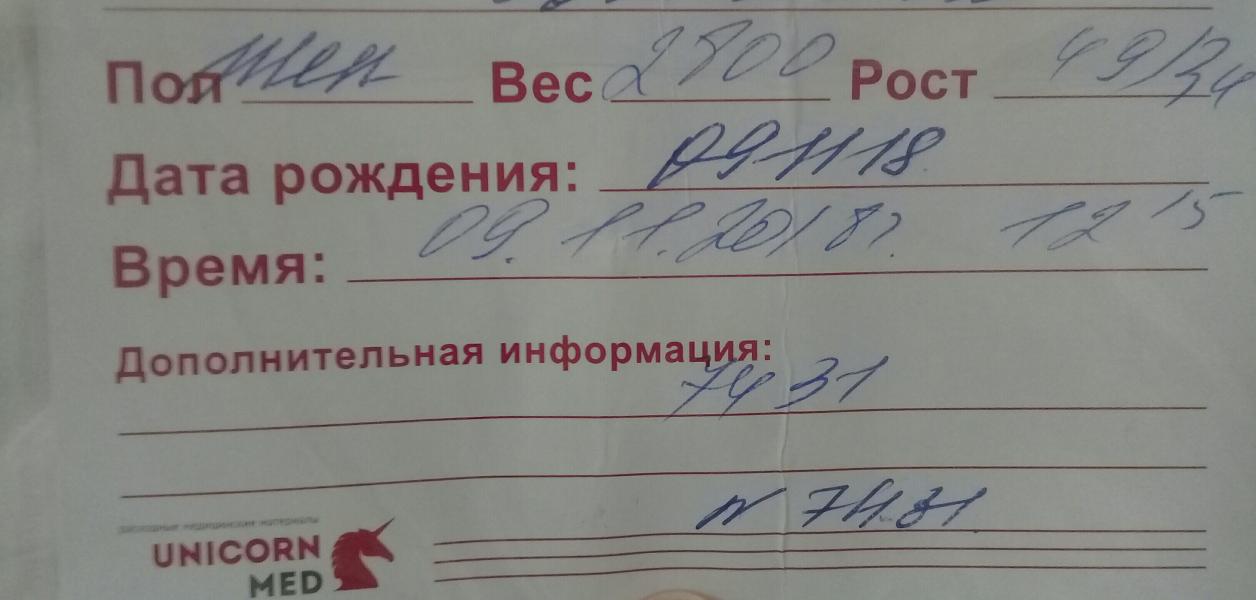 Пол жен Вес 2800 Рост 49/34
Дата рождения: 091118
09.11.2018г. 12 15
Время:
Дополнительная информация:
7431
N 7431
расходные медицинские материалы
UNICORN
MED